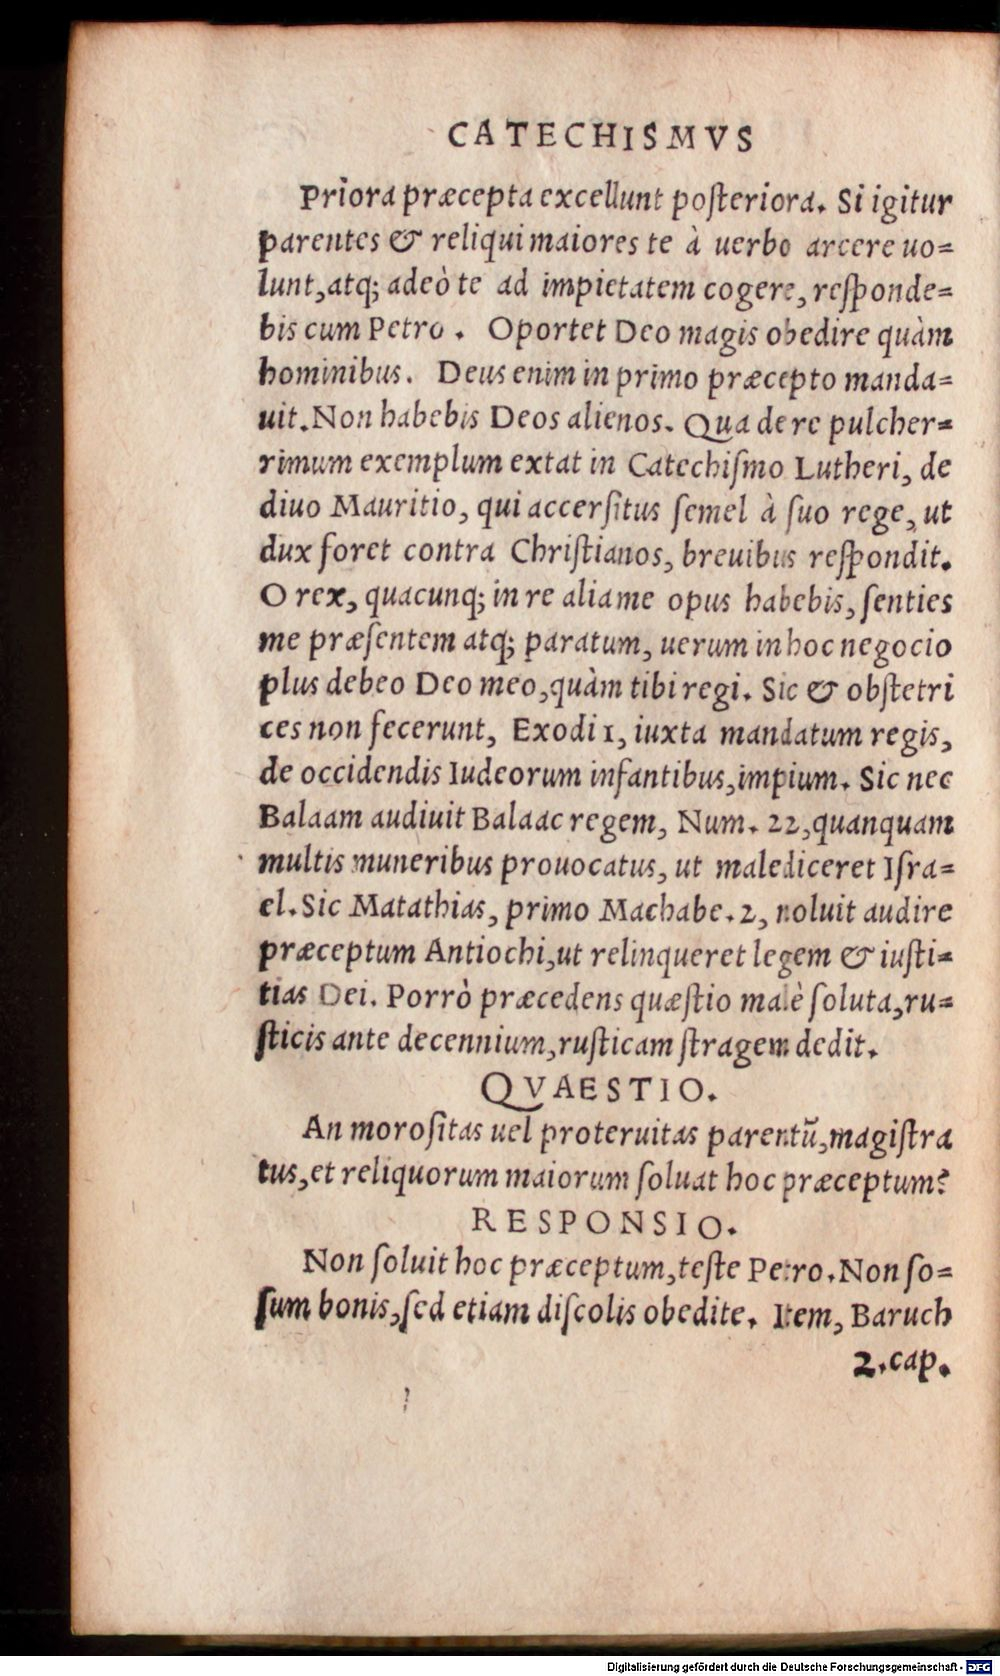 CATECHISMVS
Priora præcepta excellunt poſteriora. Si igitur
parentes & reliqui maiores te à uerbo arcere uo=
lunt, atq; adeò te ad impietatem cogere, reſponde=
bis cum Petro. Oportet Deo magis obedire quàm
hominibus. Deus enim in primo præcepto manda=
uit. Non habebis Deos alienos. Qua de re pulcher=
rimum exemplum extat in Catechiſmo Lutheri, de
diuo Mauritio, qui accerſitus ſemel à ſuo rege, ut
dux foret contra Chriſtianos, breuibus reſpondit.
O rex, quacunq; in re alia me opus habebis, ſenties
me præſentem atq; paratum, uerum in hoc negocio
plus debeo Deo meo, quàm tibi regi. Sic & obſtetri
ces non fecerunt, Exodi 1, iuxta mandatum regis,
de occidendis Iudeorum infantibus, impium. Sic nec
Balaam audiuit Balaac regem, Num. 22, quanquam
multis muneribus prouocatus, ut malediceret Iſra=
el. Sic Matathias, primo Machabe. 2, noluit audire
præceptum Antiochi, ut relinqueret legem & iuſti=
tias Dei. Porrò præcedens quæſtio malè ſoluta, ru=
ſticis ante decennium, ruſticam ſtragem dedit.
QVAESTIO.
An moroſitas uel proteruitas parentũ, magiſtra
tus, et reliquorum maiorum ſoluat hoc præceptum?
RESPONSIO.
Non ſoluit hoc præceptum, teſte Petro. Non ſo=
ſum bonis, ſed etiam diſcolis obedite. Item, Baruch
2. cap.
Digitalisierung gefördert durch die Deutsche Forschungsgemeinschaft - DFG